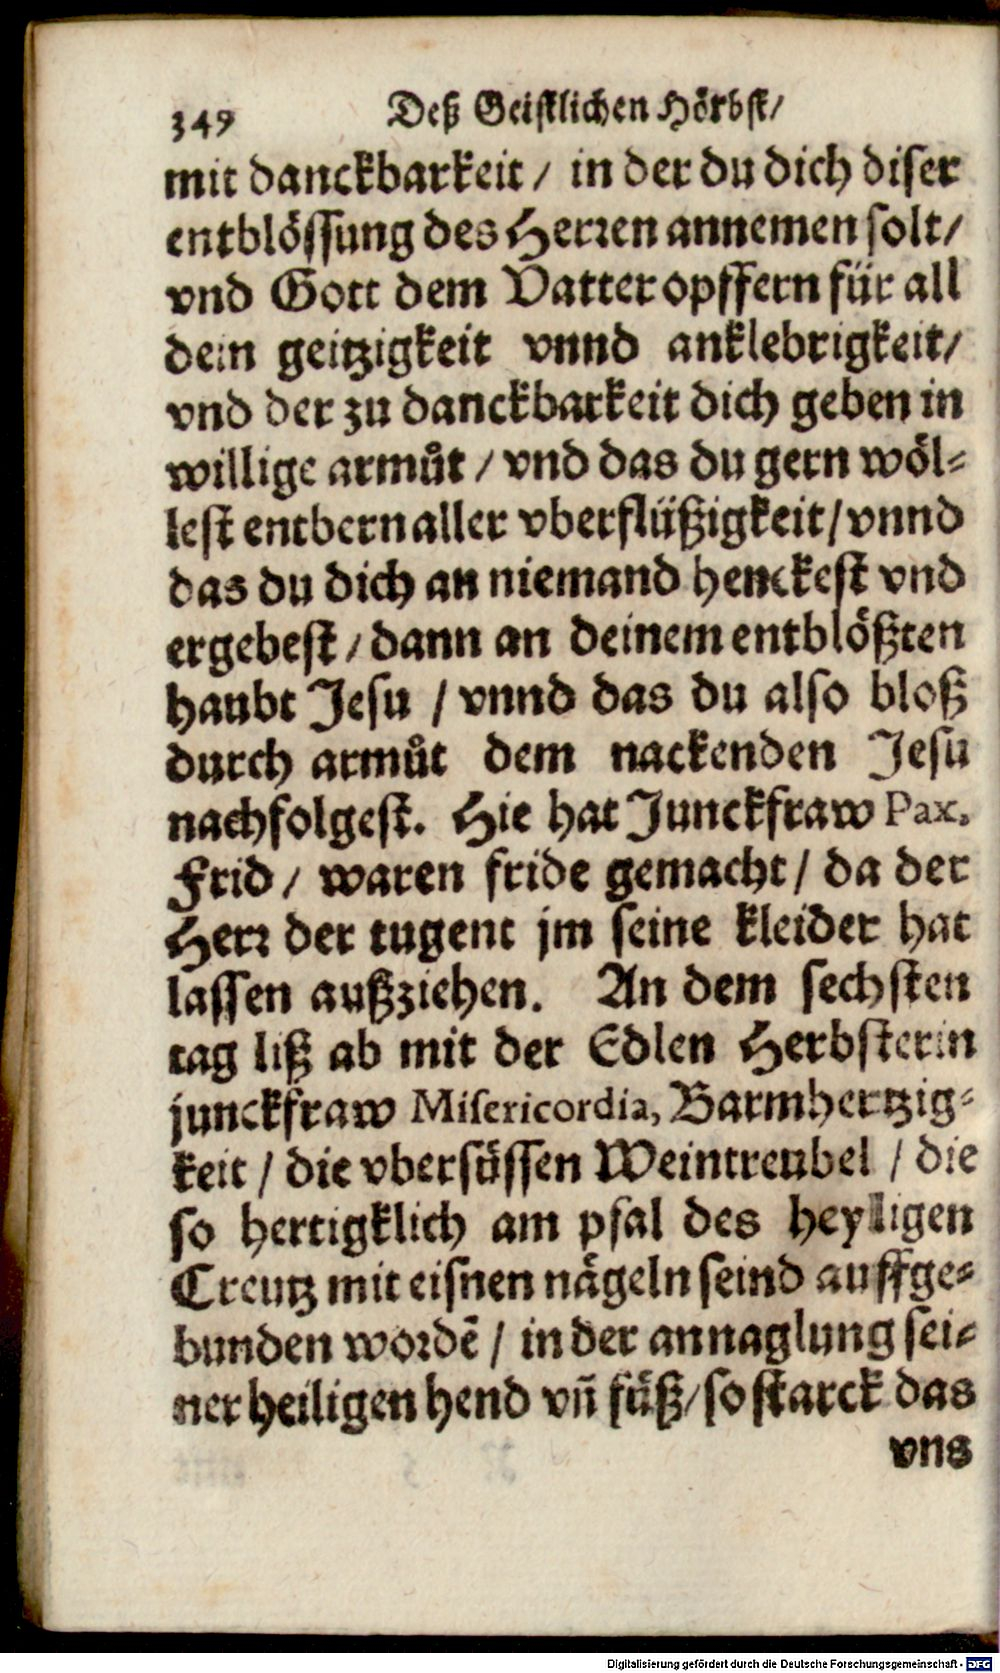 349 Deß Geistlichen Hörbst/
mit danckbarkeit / in der du dich diser
entblössung des Herꝛen annemen solt/
vnd Gott dem Vatter opffern für all
dein geitzigkeit vnnd anklebrigkeit/
vnd der zu danckbarkeit dich geben in
willige armůt / vnd das du gern wöl-
lest entbern aller vberflüßigkeit/ vnnd
das du dich an niemand henckest vnd
ergebest / dann an deinem entblößten
haubt Jesu / vnnd das du also bloß
durch armůt dem nackenden Jesu
nachfolgest. Hie hat Junckfraw Pax.
Frid / waren fride gemacht / da der
Herꝛ der tugent jm seine kleider hat
lassen außziehen. An dem sechsten
tag liß ab mit der Edlen Herbsterin
junckfraw Misericordia, Barmhertzig-
keit / die vbersüssen Weintreubel / die
so hertigklich am pfal des heyligen
Creutz mit eisnen nägeln seind auffge-
bunden woꝛdē / in der annaglung sei-
ner heiligen hend vñ füß/ so starck das
vns
Digitalisierung gefördert durch die Deutsche Forschungsgemeinschaft - DFG